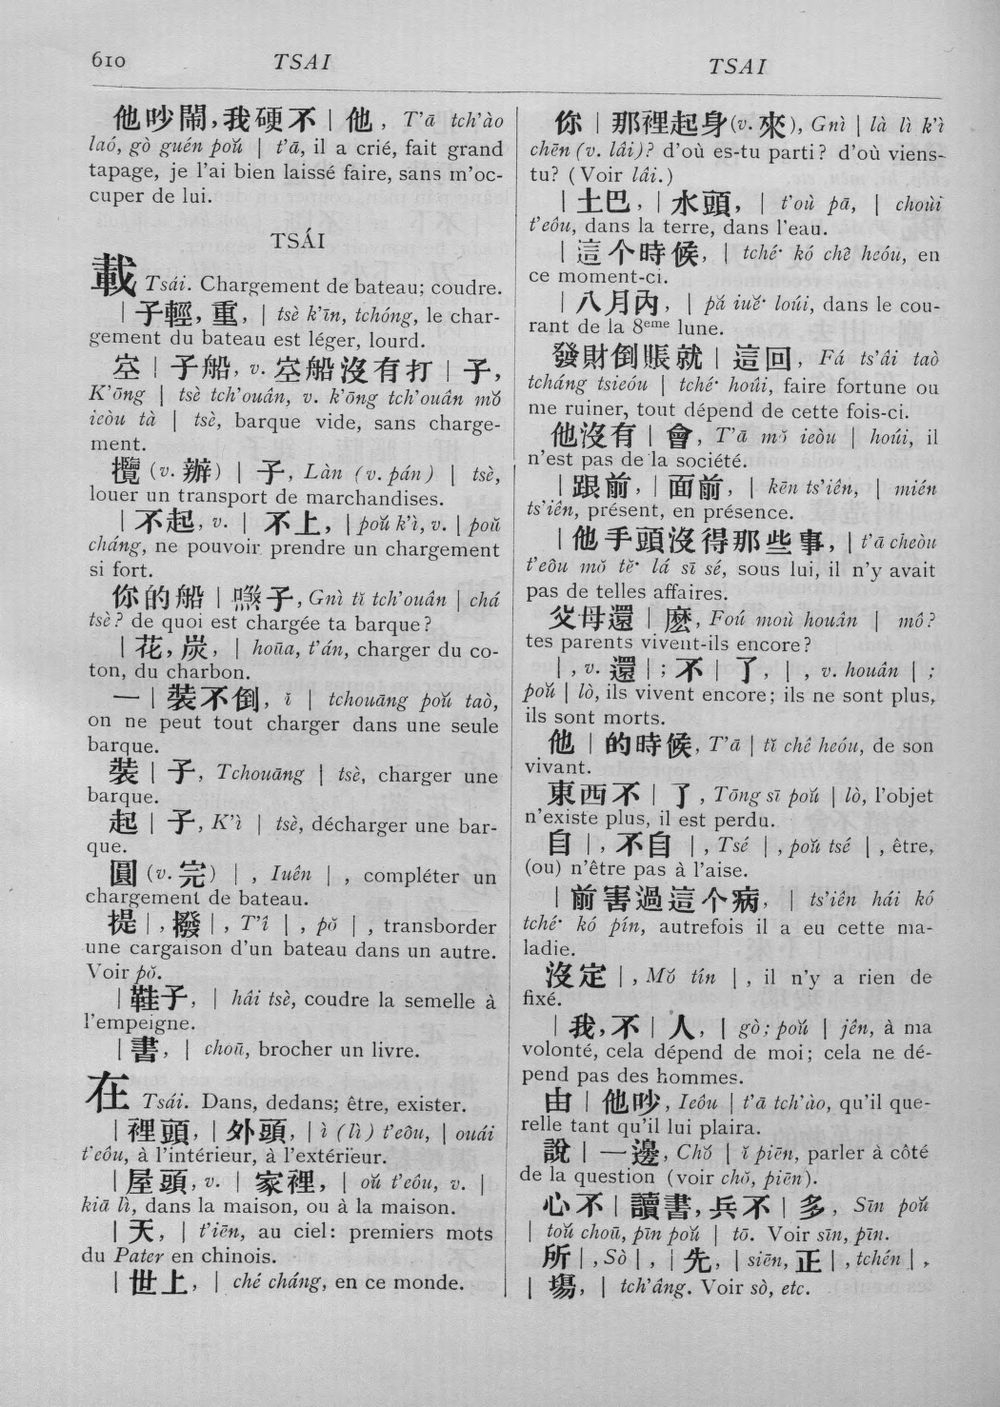 610
TSAI
TSAI
他吵鬧,我硬不 | 他, T'ā tch'ào
laó, gò guén poŭ | t'ā, il a crié, fait grand
tapage, je l'ai bien laissé faire, sans m'oc-
cuper de lui.
TSÁI
載 Tsái. Chargement de bateau; coudre.
| 子輕, 重, | tsè k'īn, tchóng, le char-
gement du bateau est léger, lourd.
空 | 子船, v. 空船沒有打 | 子,
K'ōng | tsè tch'ouân, v. k'ōng tch'ouân mŏ
ieòu tà | tsè, barque vide, sans charge-
ment.
攬 (v. 辦) | 子, Làn (v. pán) | tsè,
louer un transport de marchandises.
| 不起, v. | 不上, | poŭ k'ì, v. | poŭ
cháng, ne pouvoir prendre un chargement
si fort.
你的船 | 子, Gnì tĭ tch'ouân | chá
tsè? de quoi est chargée ta barque?
| 花, 炭, | hoūa, t'án, charger du co-
ton, du charbon.
一 | 裝不倒, ĭ | tchouāng poŭ taò,
on ne peut tout charger dans une seule
barque.
裝 | 子, Tchouāng | tsè, charger une
barque.
起 | 子, K'ì | tsè, décharger une bar-
que.
圓 (v. 完) | , Iuên | , compléter un
chargement de bateau.
提 | , 撥 | , T'î | , pŏ | , transborder
une cargaison d'un bateau dans un autre.
Voir pŏ.
| 鞋子, | hâi tsè, coudre la semelle à
l'empeigne.
| 書, | choū, brocher un livre.
在 Tsái. Dans, dedans; être, exister.
| 裡頭, | 外頭, | ì (lì) t'eôu, | ouái
t'eôu, à l'intérieur, à l'extérieur.
| 屋頭, v. | 家裡, | oŭ t'eôu, v. |
kiā lì, dans la maison, ou à la maison.
| 天, | t'iēn, au ciel: premiers mots
du Pater en chinois.
| 世上, | ché cháng, en ce monde.
你 | 那裡起身(v. 來), Gnì | là lì k'ì
chēn (v. lâi)? d'où es-tu parti? d'où viens-
tu? (Voir lâi.)
| 土巴, | 水頭, | t'où pā, | choùi
t'eôu, dans la terre, dans l'eau.
| 這个時候, | tché· kó chê heóu, en
ce moment-ci.
| 八月內, | pă iuĕ· loúi, dans le cou-
rant de la 8eme lune.
發財倒賬就 | 這回, Fá ts'âi taò
tcháng tsieóu | tché· hoûi, faire fortune ou
me ruiner, tout dépend de cette fois-ci.
他沒有 | 會, T'ā mŏ ieòu | hoúi, il
n'est pas de la société.
| 跟前, | 面前, | kēn ts'iên, | mién
ts'iên, présent, en présence.
| 他手頭沒得那些事, | t'ā cheòu
t'eôu mŏ tĕ· lá sī sé, sous lui, il n'y avait
pas de telles affaires.
父母還 | 麽, Foú moù houân | mô?
tes parents vivent-ils encore?
| , v. 還 | ; 不 | 了, | , v. houân | ;
poŭ | lò, ils vivent encore; ils ne sont plus,
ils sont morts.
他 | 的時候, T'ā | tĭ chê heóu, de son
vivant.
東西不 | 了, Tōng sī poŭ | lò, l'objet
n'existe plus, il est perdu.
自 | , 不自 | , Tsé | , poŭ tsé | , être,
(ou) n'être pas à l'aise.
| 前害過這个病, | ts'iên hái kó
tché· kó pín, autrefois il a eu cette ma-
ladie.
沒定 | , Mŏ tín | , il n'y a rien de
fixé.
| 我, 不 | 人, | gò; poŭ | jên, à ma
volonté, cela dépend de moi; cela ne dé-
pend pas des hommes.
由 | 他吵, Ieôu | t'ā tch'ào, qu'il que-
relle tant qu'il lui plaira.
說 | 一邊, Chŏ | ĭ piēn, parler à côté
de la question (voir chŏ, piēn).
心不 | 讀書, 兵不 | 多, Sīn poŭ
| toŭ choū, pīn poŭ | tō. Voir sīn, pīn.
所 | , Sò | , | 先, | siēn, 正 | , tchén | ,
| 塲, | tch'âng. Voir sò, etc.